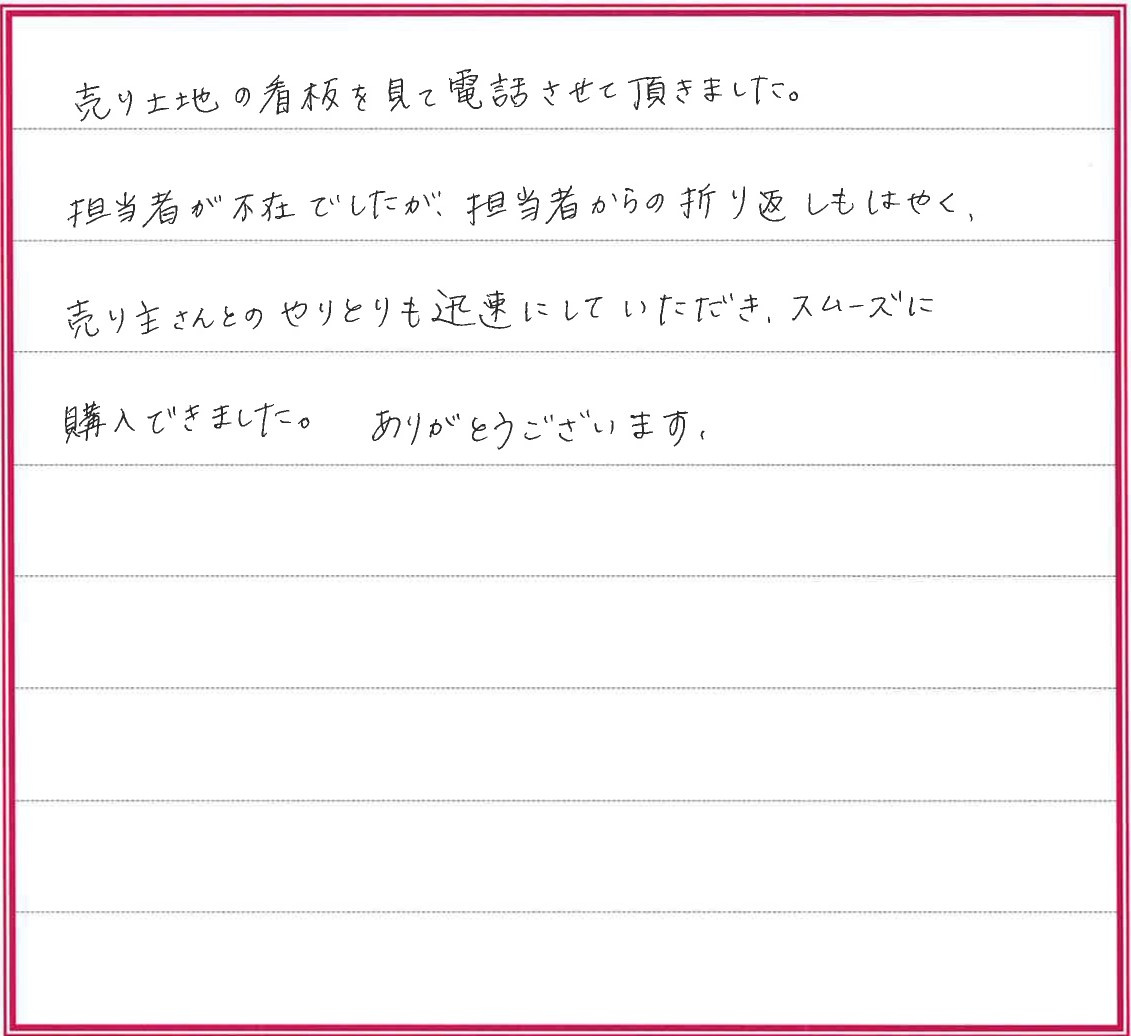 売り土地の看板を見て電話させて頂きました。
担当者が不在でしたが、担当者からの折り返しもはやく、
売り主さんとのやりとりも迅速にしていただき、スムーズに
購入できました。　ありがとうございます。